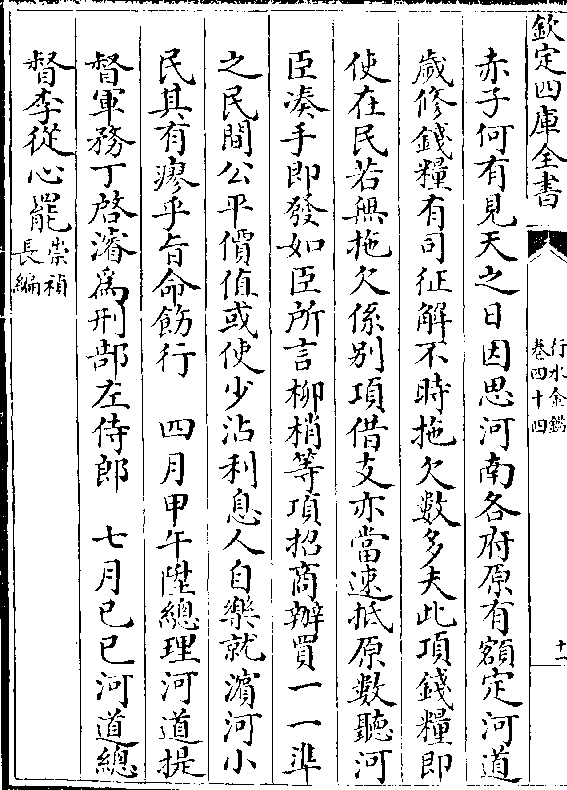 欽定四庫全書
行水金鑑
卷四十四
十一
赤子何有見天之日因思河南各府原有額定河道
歲修錢糧有司征解不時拖欠數多夫此項錢糧即
使在民若無拖欠係别項借支亦當速抵原數聽河
臣凑手即發如臣所言柳梢等項招商辦買一一準
之民間公平價值或使少沾利息人自樂就濵河小
民其有瘳乎旨命飭行　四月甲午陞總理河道提
督軍務丁啓濬爲刑部左侍郎　七月己巳河道總
督李從心罷崇禎
長編